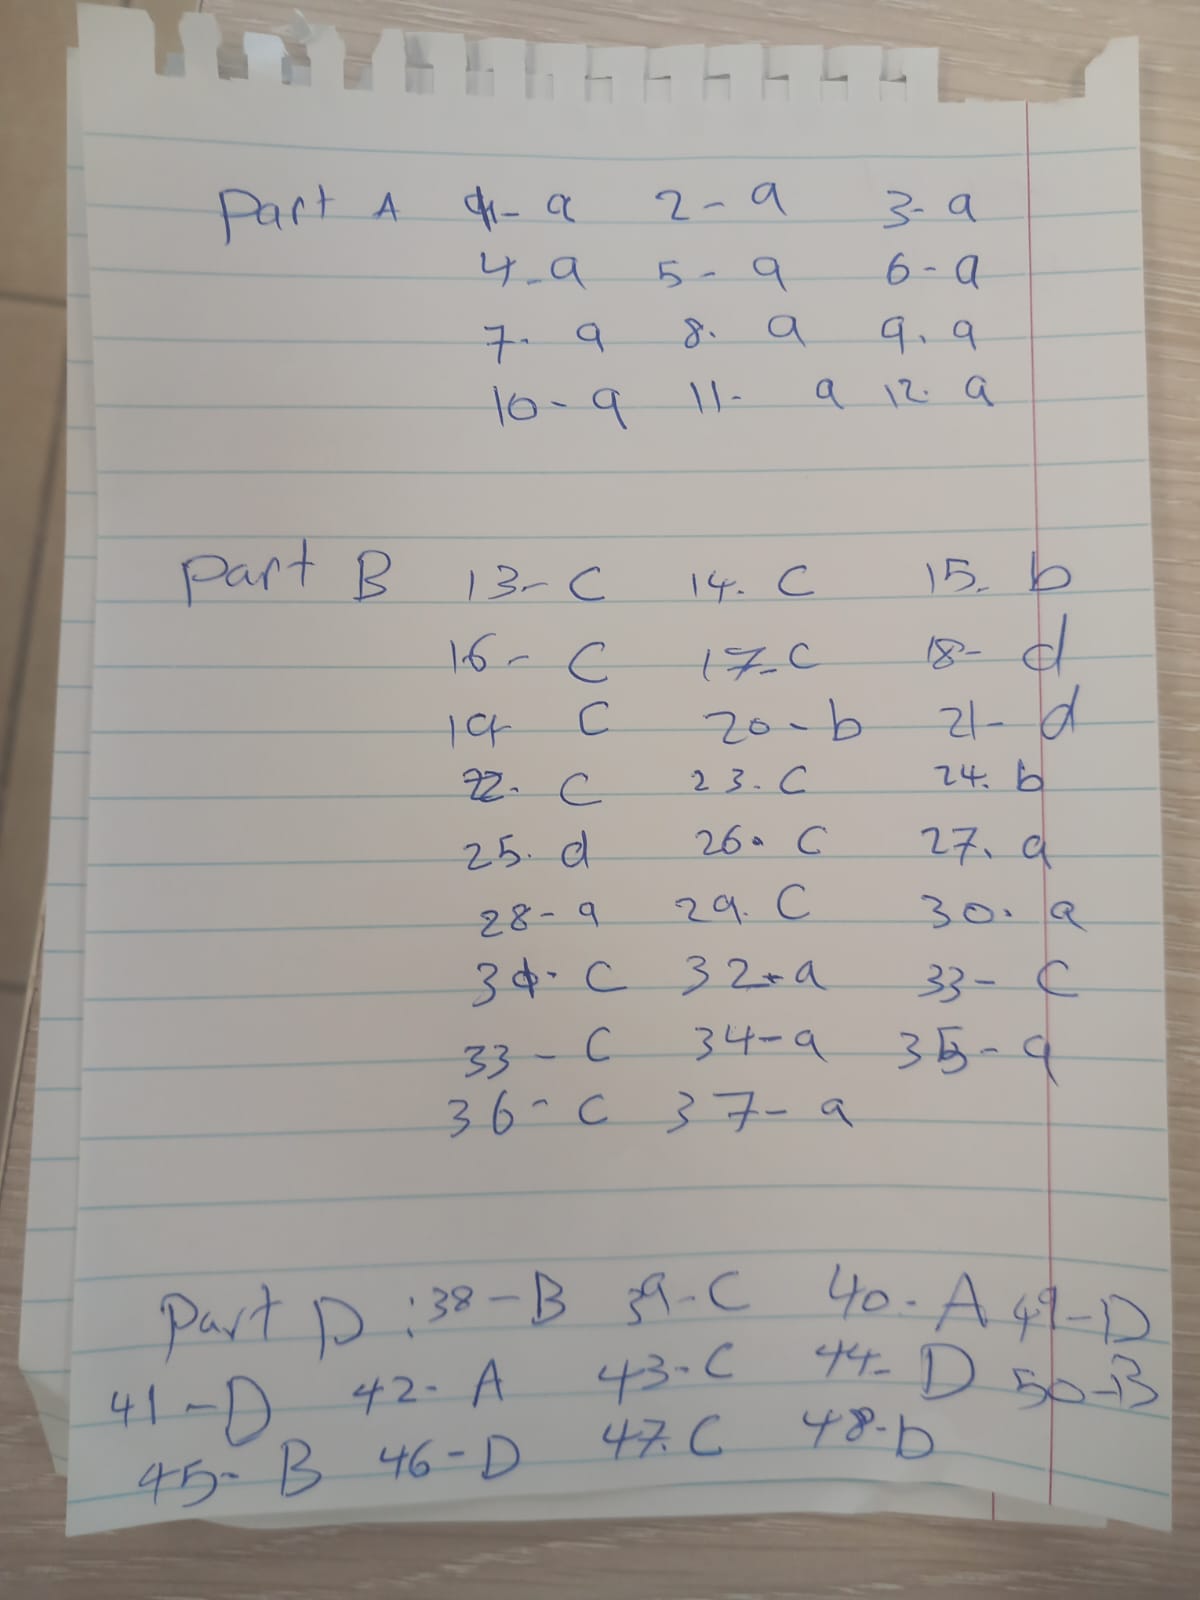 Part A 1- a 2- a 3- a
4-a 5- a 6-a
7- a 8. a 9. a
10-a 11- a 12. a
Part B 13-C 14. C 15. b
16- C 17-C 18- d
19- C 20-b 21- d
22. C 23. C 24. b
25. d 26. C 27. a
28-a 29. C 30. a
31. C 32-a 33- C
33- C 34-a 35-a
36- C 37-a
Part D :38-B 39-C 40-A 49-D
41-D 42-A 43-C 44-D 50-B
45-B 46-D 47.C 48-b